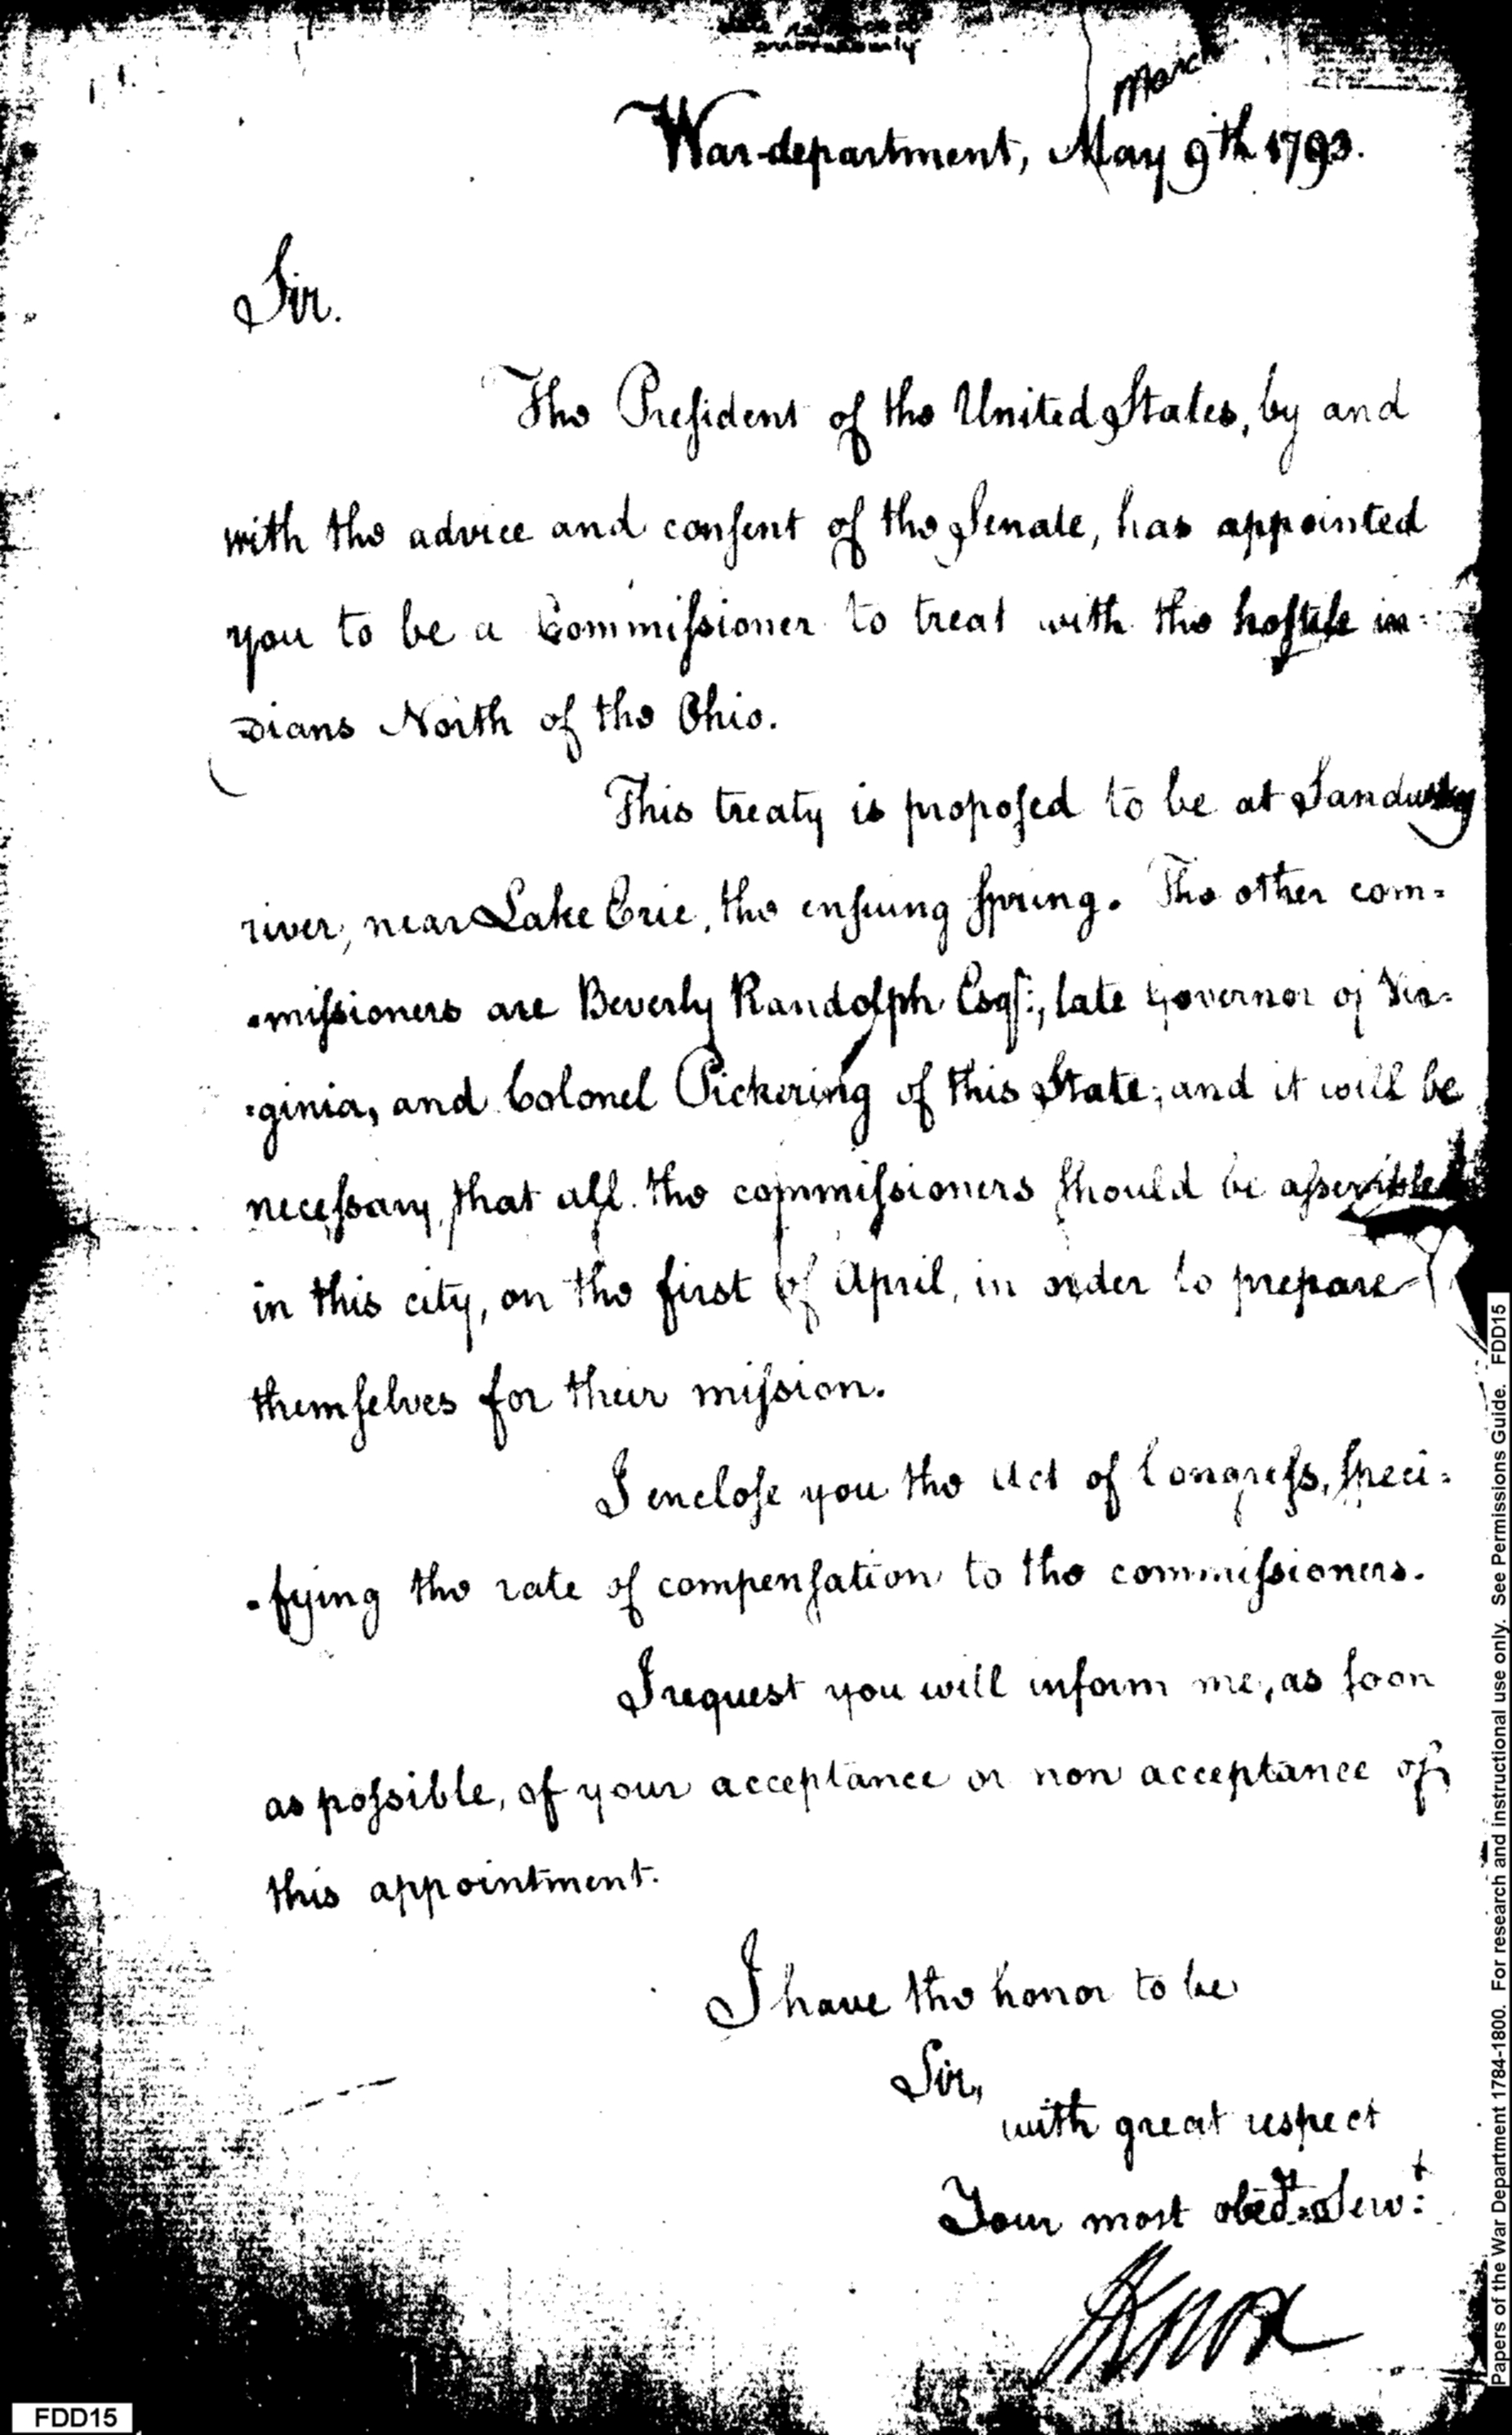 March
War-department, May 9th 1793.
Sir.
The President of the United States, by and
with the advice and consent of the Senate, has appointed
you to be a Commissioner to treat with the hostile in=
dians North of the Ohio.
This treaty is proposed to be at Sandusky
river, near Lake Erie, the ensuing spring. The other com=
=missioners are Beverly Randolph Esqr:, late Governor of Vir=
=ginia, and Colonel Pickering of this State; and it will be
necessary, that all the commissioners should be assembled
in this city, on the first of April, in order to prepare
themselves for their mission.
I enclose you the Act of Congress, speci=
=fying the rate of compensation to the commissioners.
I request you will inform me, as soon
as possible, of your acceptance or non acceptance of
this appointment.
I have the honor to be
Sir,
with great respect
Your most obedt. Servt:
HKnox
FDD15
Papers of the War Department 1784-1800. For research and instructional use only. See Permissions Guide. FDD15